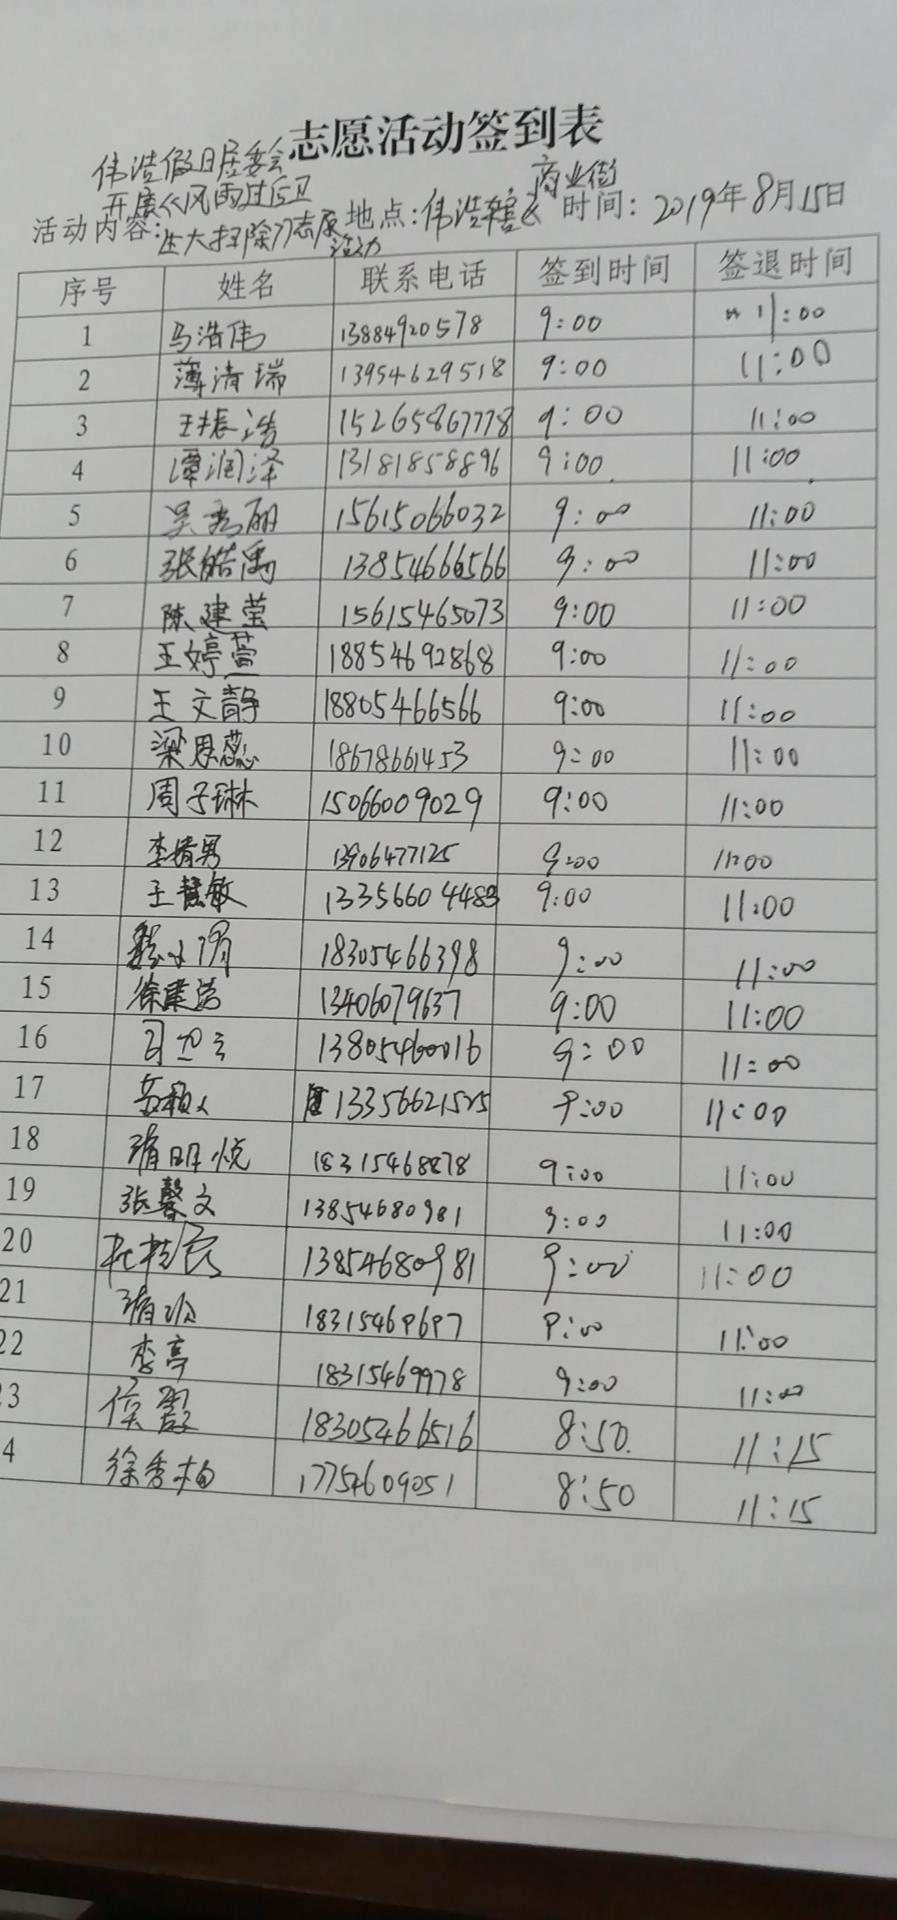 志愿活动签到表
伟浩假日居委会
开展《风雨过后卫
活动内容:生大扫除》志愿活动 地点:伟浩辖区商业街 时间:2019年8月15日
序号 姓名 联系电话 签到时间 签退时间
1 马浩伟 13884920578 9:00 11:00
2 薄清瑞 13954629518 9:00 11:00
3 王振浩 15265867778 9:00 11:00
4 谭润泽 13181858896 9:00 11:00
5 吴秀丽 15615066032 9:00 11:00
6 张皓禹 13854666566 9:00 11:00
7 陈建莹 15615465073 9:00 11:00
8 王婷萱 18854692868 9:00 11:00
9 王文静 18805466566 9:00 11:00
10 梁思蕊 18678661453 9:00 11:00
11 周子琳 15066009029 9:00 11:00
12 李倩男 13906477125 9:00 11:00
13 王慧敏 13356604483 9:00 11:00
14 18305466398 9:00 11:00
15 徐建洁 13406079637 9:00 11:00
16 13805460016 9:00 11:00
17 13356621525 9:00 11:00
18 隋明悦 18315468878 9:00 11:00
19 张馨文 13854680981 9:00 11:00
20 杜桂民 13854680981 9:00 11:00
21 9:00 11:00
22 李亭 18315469978 9:00 11:00
3 侯 18305466516 8:50 11:15
4 徐秀梅 17754609051 8:50 11:15